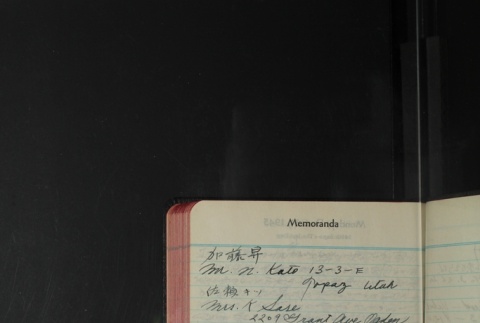 Memoranda
加藤昇
Mr. N. Kato 13-3-E
Topaz Utah
Mrs. K
2209 Grant Ave Ogden